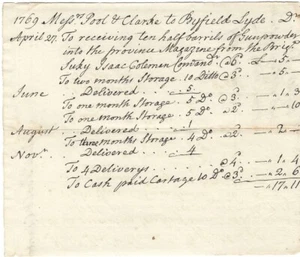 1769 Messrs. Pool & Clarke to Byfield Lyde. Dr
April 27. To receiving ten half barrils of Gunpowder
into the province Magazene from the Brign.
Suky Isaac Coleman Comandr. @6d. — 5 —
To two months Storage 10 Ditto @3d. — 5 —
June Delivered . . . 5
To one month Storage 5 Do @3d. — 1 . 3
To one month Storage 5 Do @2d. — — 10
August Delivered . . . 1
To three months Storage 4 Do @2d. — 2 —
Novr. Delivered . . . 4
To 4 Deliverys . . . @4d. — 1 . 4
To Cash paid Cartage 10 Do @3d. — 2 . 6
— 17 . 11